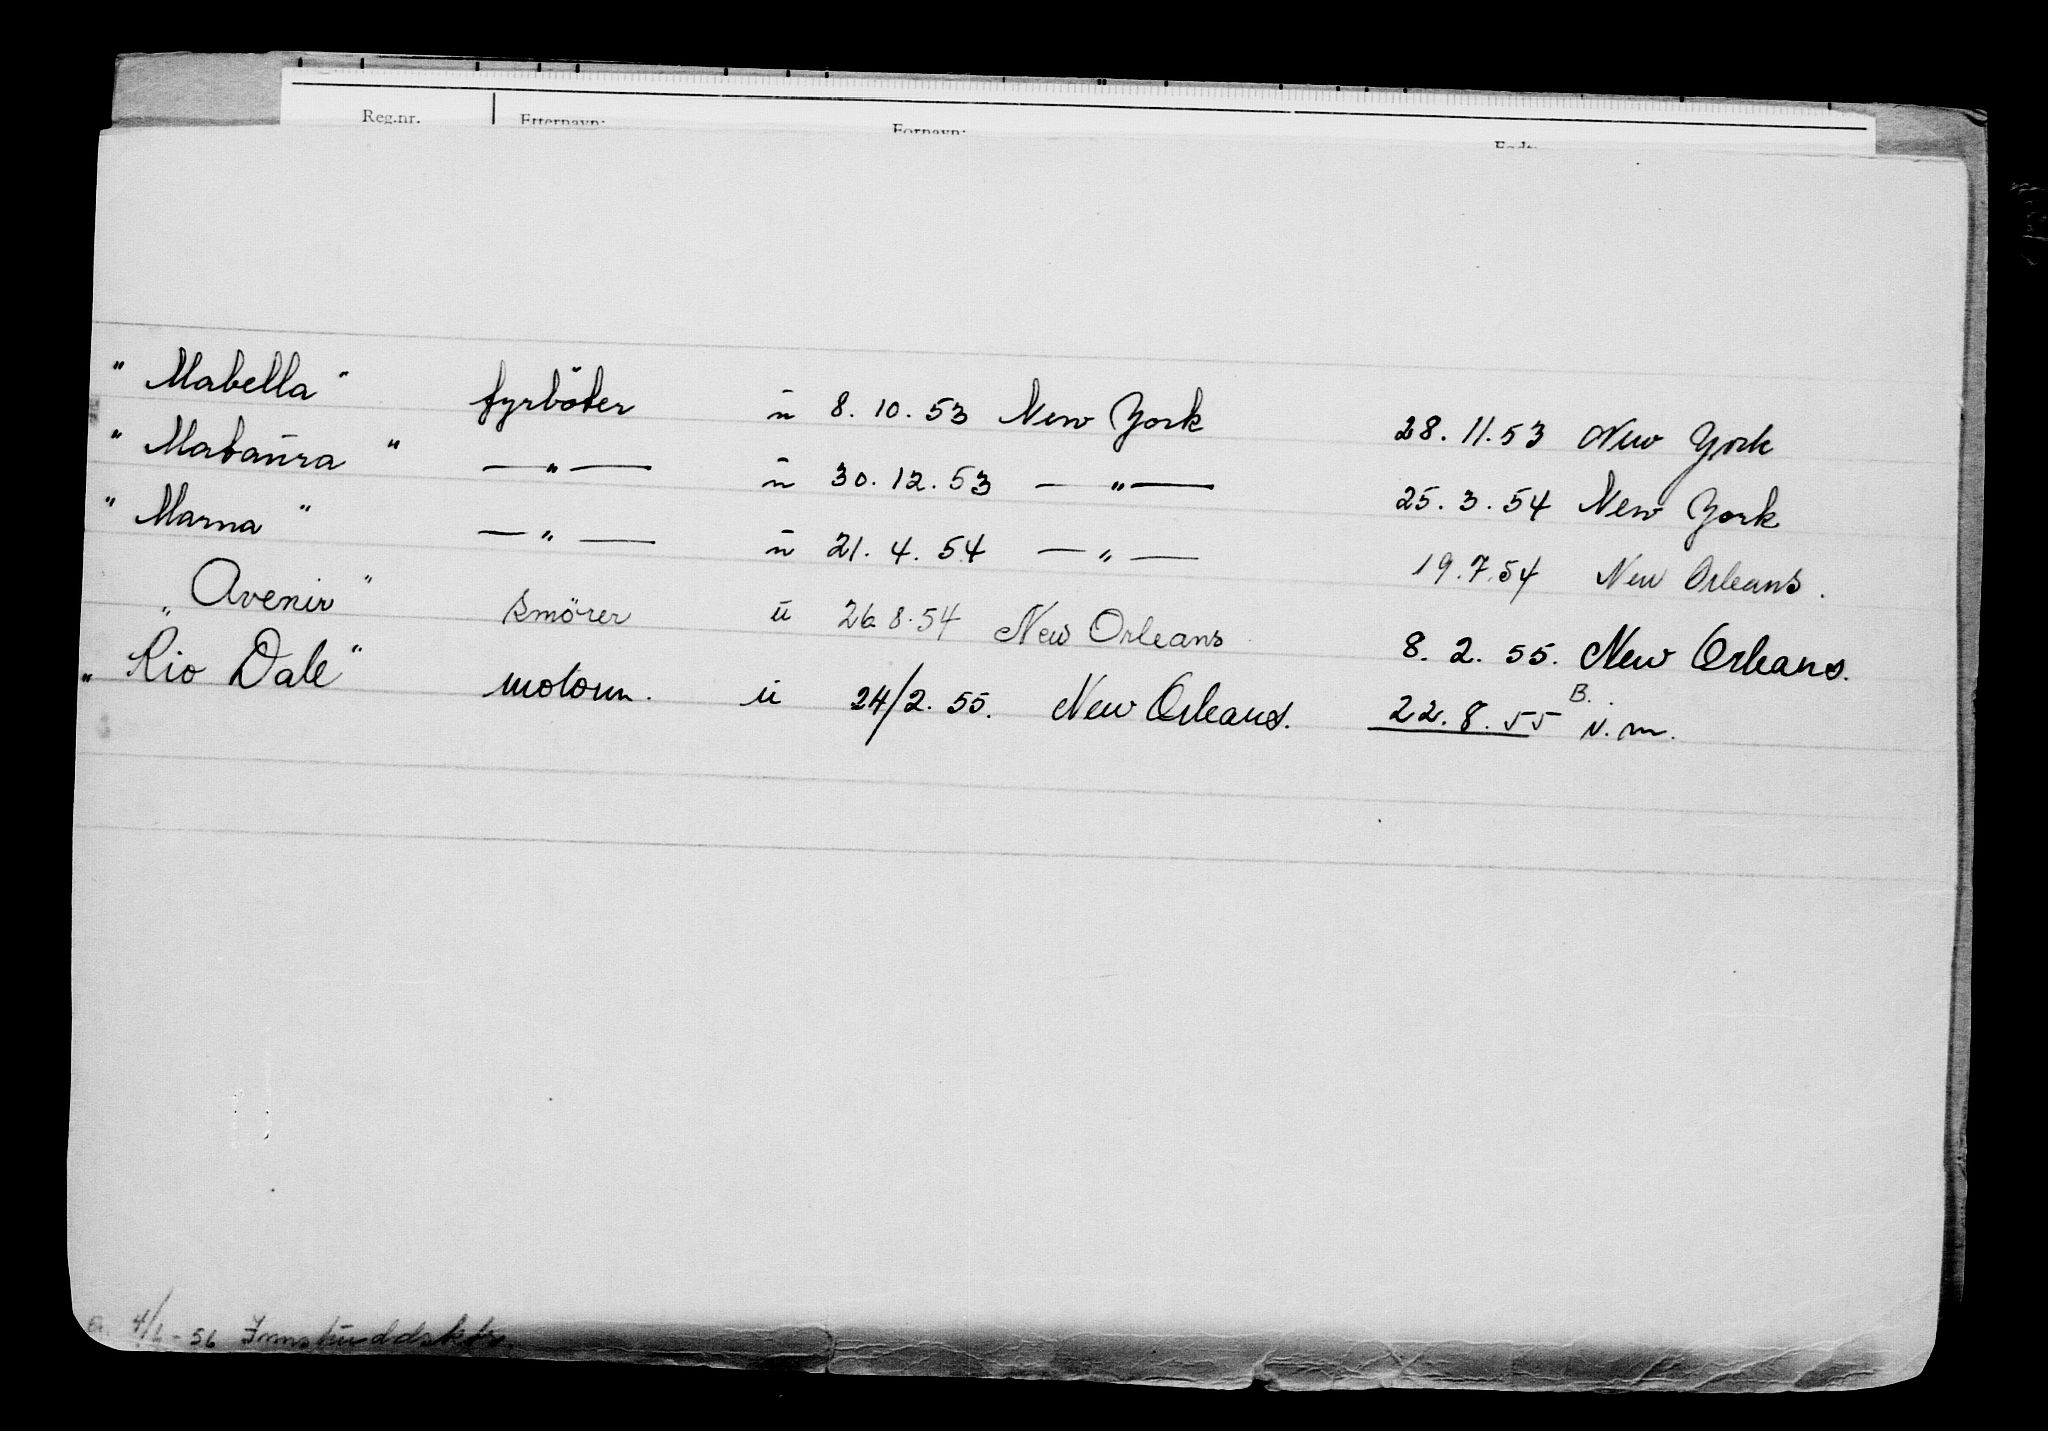 Reg.nr. Etternavn: Fornavn: Født:
"Mabella" fyrböter ū 8.10.53 New York 28.11.53 New York
"Mataura" —"— ū 30.12.53 —"— 25.3.54 New York
"Marna" —"— ū 21.4.54 —"— 19.7.54 New Orleans.
"Avenir" smörer ū 26.8.54 New Orleans 8.2.55. New Orleans.
"Rio Dale" motorm. ū 24/2.55. New Orleans. 22.8.55 B. v.m.
4/6-56